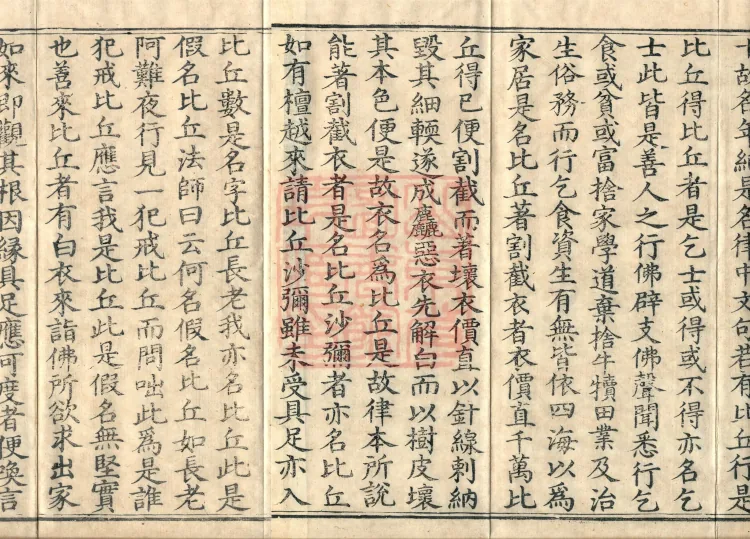 是名律中文句若有比丘行是
比丘得比丘者是乞士或得或不得亦名乞
士此皆是善人之行佛辟支佛聲聞悉行乞
食或貧或富捨家學道棄捨牛犢田業及治
生俗務而行乞食資生有無皆依四海以爲
家居是名比丘著割截衣者衣價直千萬比
丘得已便割截而著壞衣價直以針線刺納
毀其細輭遂成麤惡衣先解白而以樹皮壞
其本色便是故衣名爲比丘是故律本所說
能著割截衣者是名比丘沙彌者亦名比丘
如有檀越來請比丘沙彌雖未受具足亦入
比丘數是名字比丘長老我亦名比丘此是
假名比丘法師曰云何名假名比丘如長老
阿難夜行見一犯戒比丘而問咄此爲是誰
犯戒比丘應言我是比丘此是假名無堅實
也善來比丘者有白衣來詣佛所欲求出家
如來即觀其根因緣具足應可度者便喚言